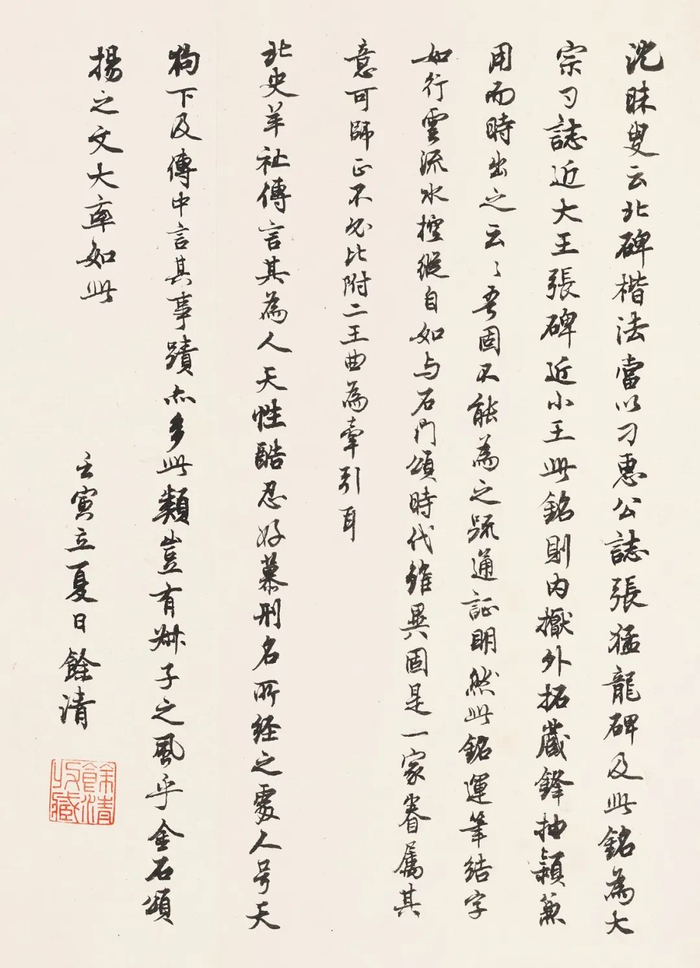 沈昧叟云北碑楷法當以刁惠公誌張猛龍碑及此銘為大
宗刁誌近大王張碑近小王此銘則內擫外拓藏鋒抽穎兼
用而時出之云々吾固不能為之疏通証明然此銘運筆結字
如行雲流水控縱自如与石門頌時代雖異固是一家眷屬其
意可師正不必比附二王曲為牽引耳
北史羊祉傳言其為人天性酷忍好慕刑名所經之處人号天
狗下及傳中言其事蹟亦多此類豈有叔子之風乎金石頌
揚之文大率如此
壬寅立夏日餘清
餘清收藏